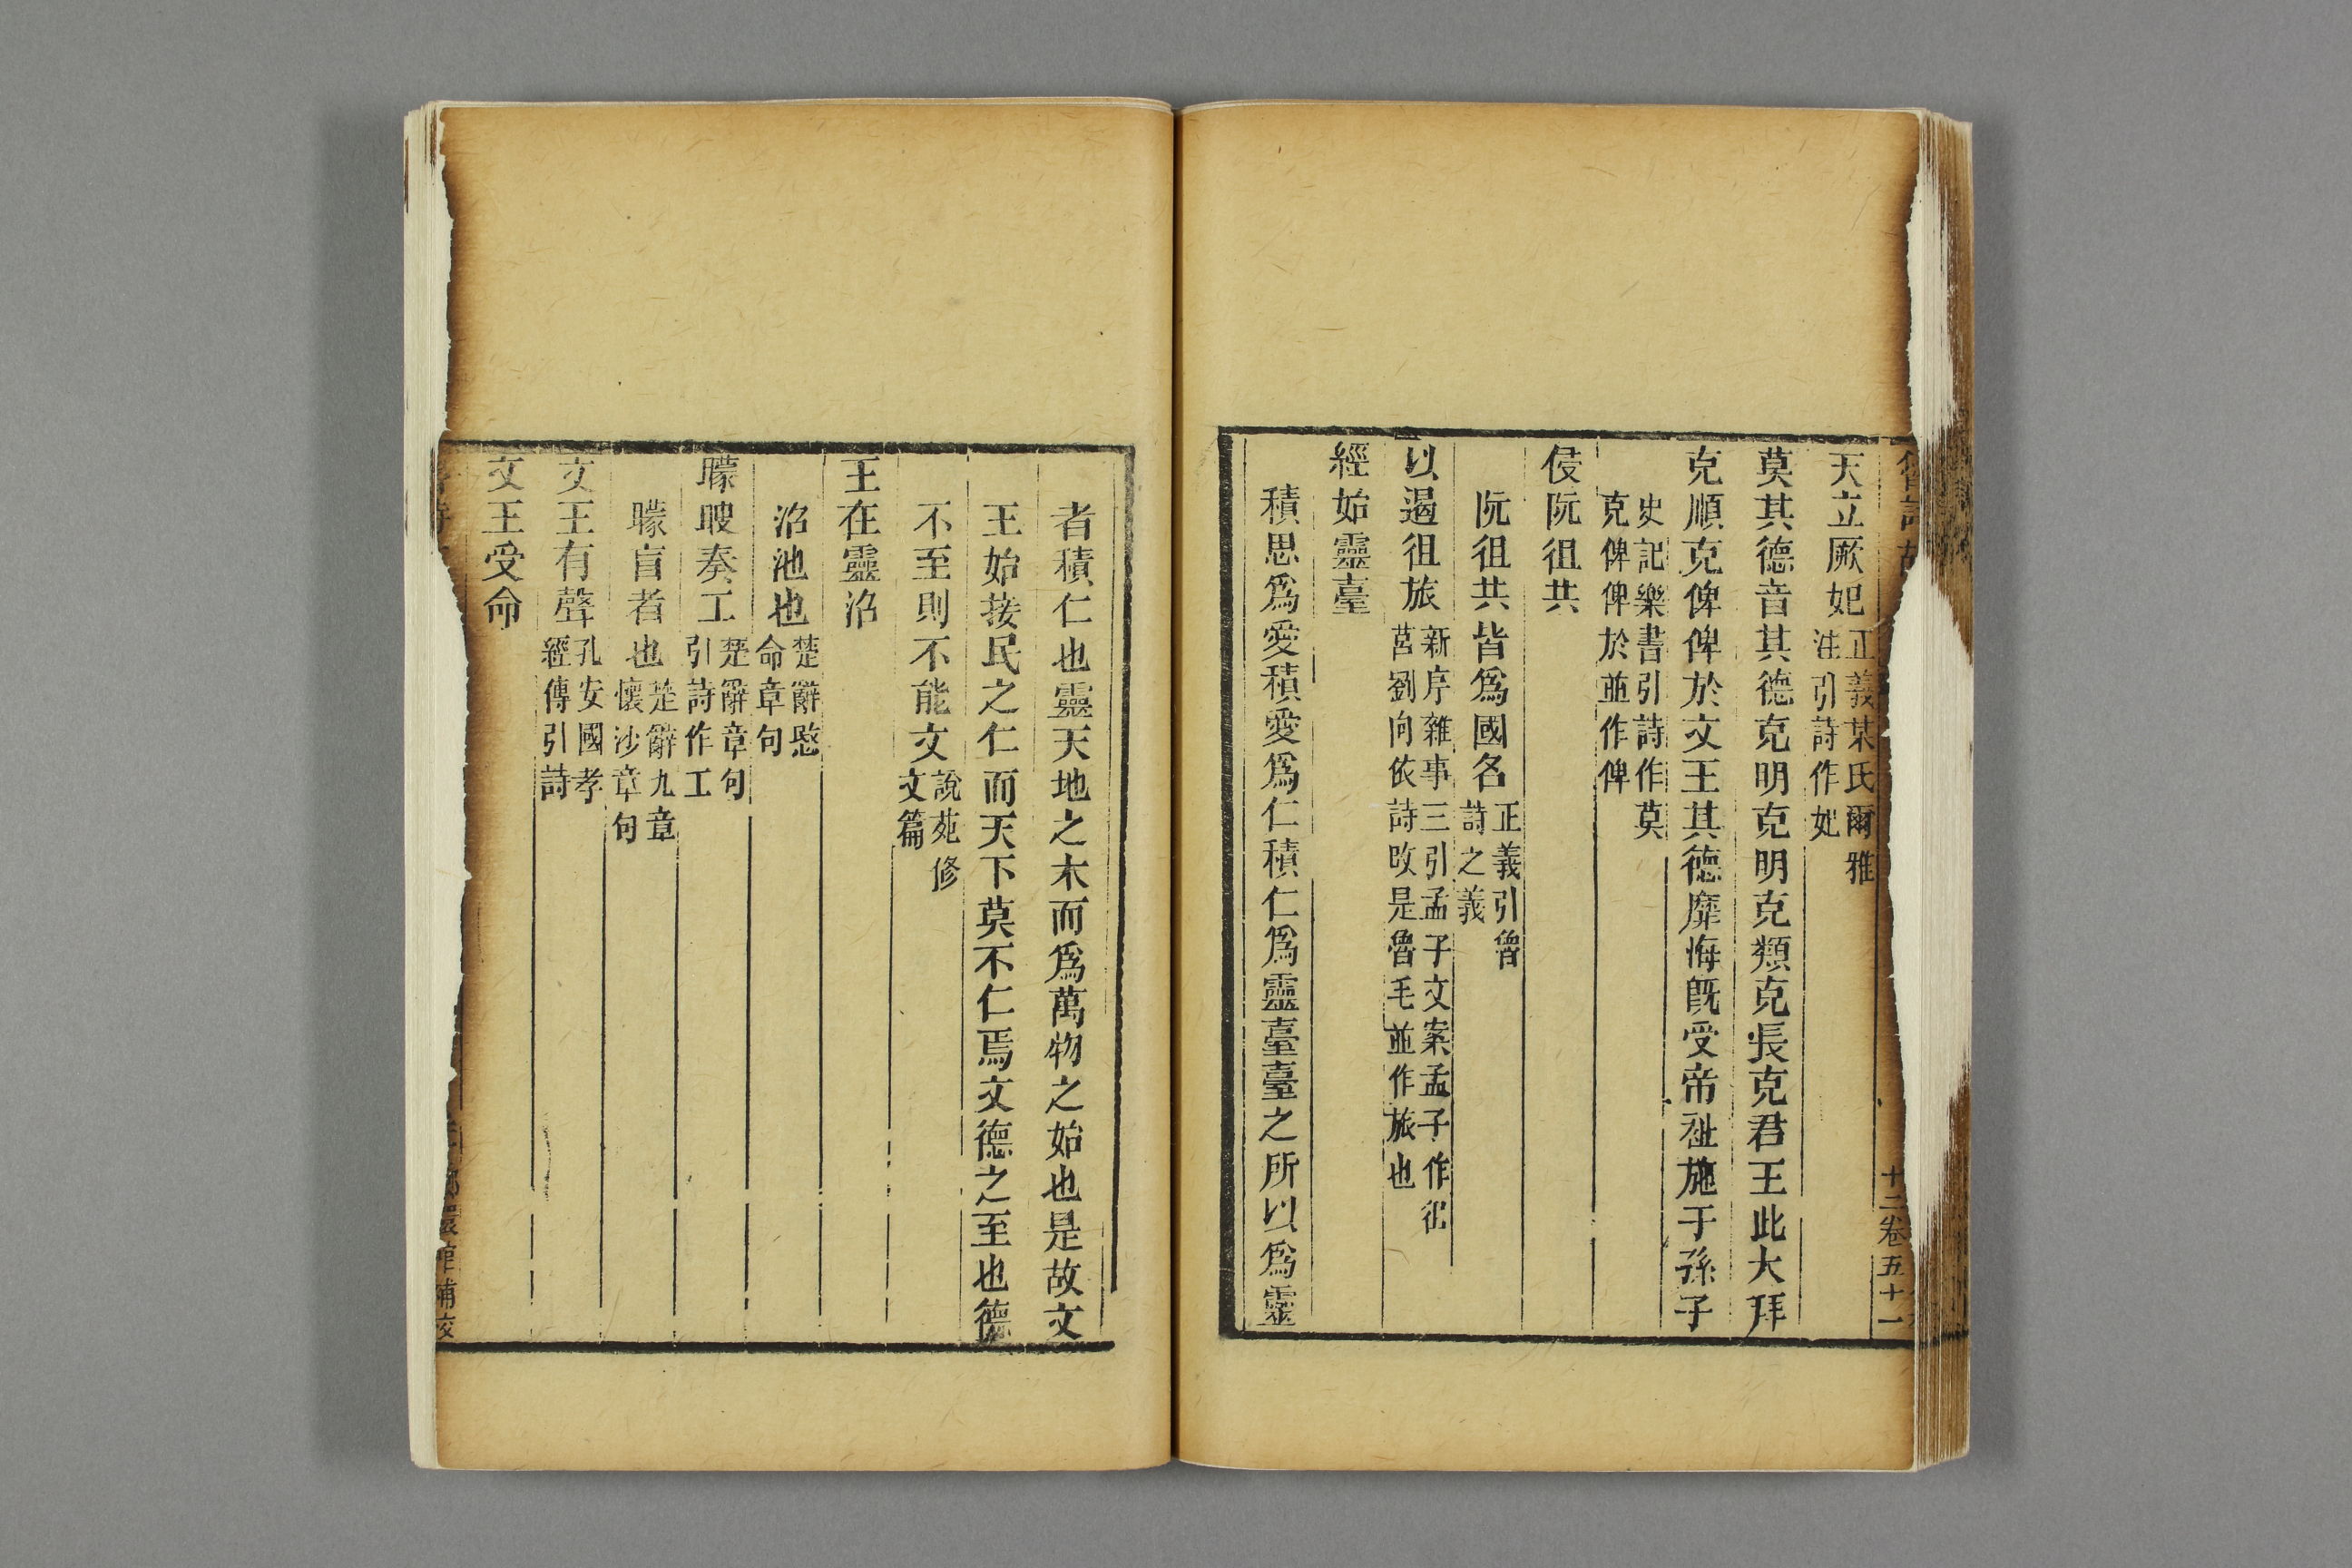 魯詩故
十二卷五十一
天立厥妃正義某氏爾雅注引詩作妃
莫其德音其德克明克明克類克長克君王此大拜
克順克俾俾於文王其德靡悔既受帝祉施于孫子
史記樂書引詩作莫克俾俾於並作俾
侵阮徂共
阮徂共皆爲國名正義引魯詩之義
以遏徂旅新序雜事三引孟子文案孟子作徂莒劉向依詩改是魯毛並作旅也
經始靈臺
積思爲愛積愛爲仁積仁爲靈臺臺之所以爲靈
者積仁也靈天地之木而爲萬物之始也是故文
王始接民之仁而天下莫不仁焉文德之至也德
不至則不能文說苑修文篇
王在靈沼
沼池也楚辭愍命章句
矇瞍奏工楚辭章句引詩作工
矇盲者也楚辭九章懷沙章句
文王有聲孔安國孝經傳引詩
文王受命
嫏嬛館補校